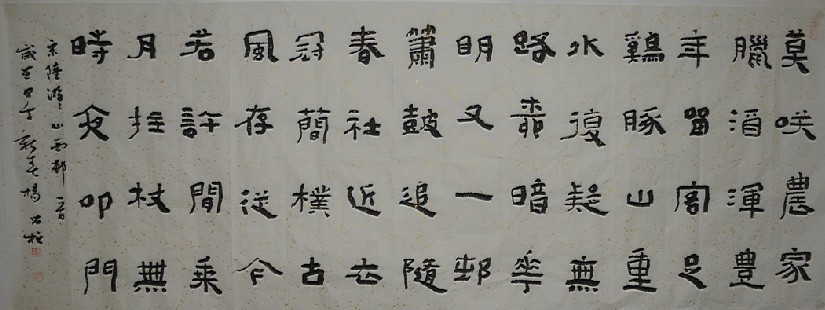 莫咲農家
臘酒渾豊
年留客足
鷄豚山重
水復疑無
路柳暗華
明又一邨
簫鼓追隨
春社近衣
冠簡樸古
風存從今
若許閒乘
月拄杖無
時夜叩門
宋陸游〻山西邨一首
歲在甲午新春楊